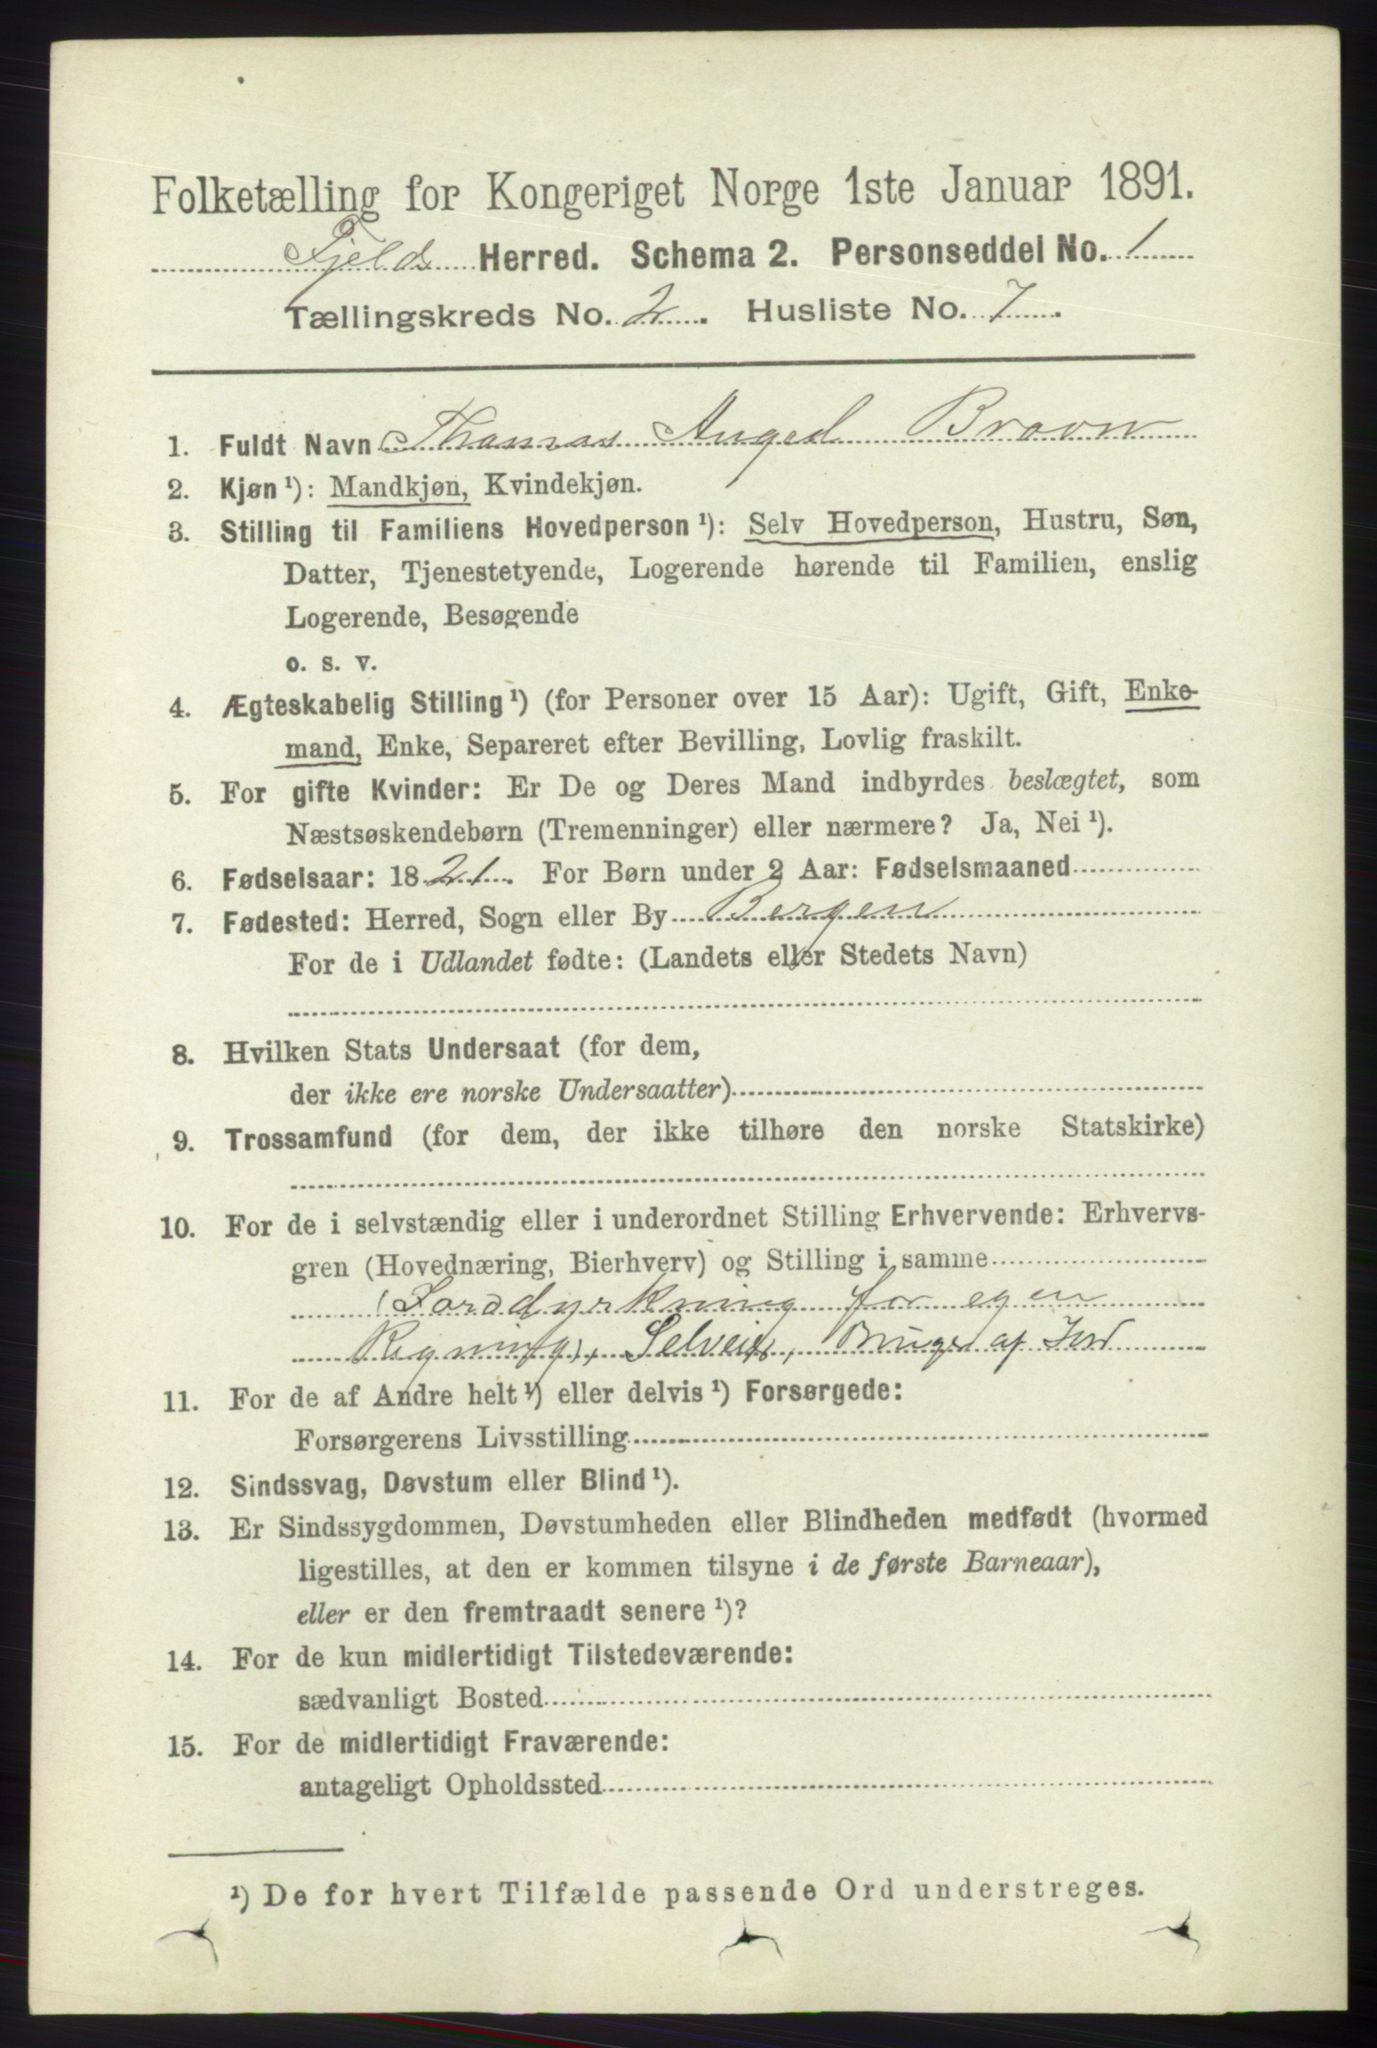 Folketælling for Kongeriget Norge 1ste Januar 1891.
Fjeld Herred. Schema 2. Personseddel No. 1
Tællingskreds No. 2. Husliste No. 7.
1. Fuldt Navn Thomas Angel Bravn
2. Kjøn ¹): Mandkjøn, Kvindekjøn.
3. Stilling til Familiens Hovedperson ¹): Selv Hovedperson, Hustru, Søn,
Datter, Tjenestetyende, Logerende hørende til Familien, enslig
Logerende, Besøgende
o. s. v.
4. Ægteskabelig Stilling ¹) (for Personer over 15 Aar): Ugift, Gift, Enke-
mand, Enke, Separeret efter Bevilling, Lovlig fraskilt.
5. For gifte Kvinder: Er De og Deres Mand indbyrdes beslægtet, som
Næstsøskendebørn (Tremenninger) eller nærmere? Ja, Nei ¹).
6. Fødselsaar: 1821. For Børn under 2 Aar: Fødselsmaaned
7. Fødested: Herred, Sogn eller By Bergen
For de i Udlandet fødte: (Landets eller Stedets Navn)
8. Hvilken Stats Undersaat (for dem,
der ikke ere norske Undersaatter)
9. Trossamfund (for dem, der ikke tilhøre den norske Statskirke)
10. For de i selvstændig eller i underordnet Stilling Erhvervende: Erhvervs-
gren (Hovednæring, Bierhverv) og Stilling i samme
(Jorddyrkning for egen
Regning), Selveier, Bruger af Jord
11. For de af Andre helt ¹) eller delvis ¹) Forsørgede:
Forsørgerens Livsstilling
12. Sindssvag, Døvstum eller Blind ¹).
13. Er Sindssygdommen, Døvstumheden eller Blindheden medfødt (hvormed
ligestilles, at den er kommen tilsyne i de første Barneaar),
eller er den fremtraadt senere ¹)?
14. For de kun midlertidigt Tilstedeværende:
sædvanligt Bosted
15. For de midlertidigt Fraværende:
antageligt Opholdssted
¹) De for hvert Tilfælde passende Ord understreges.